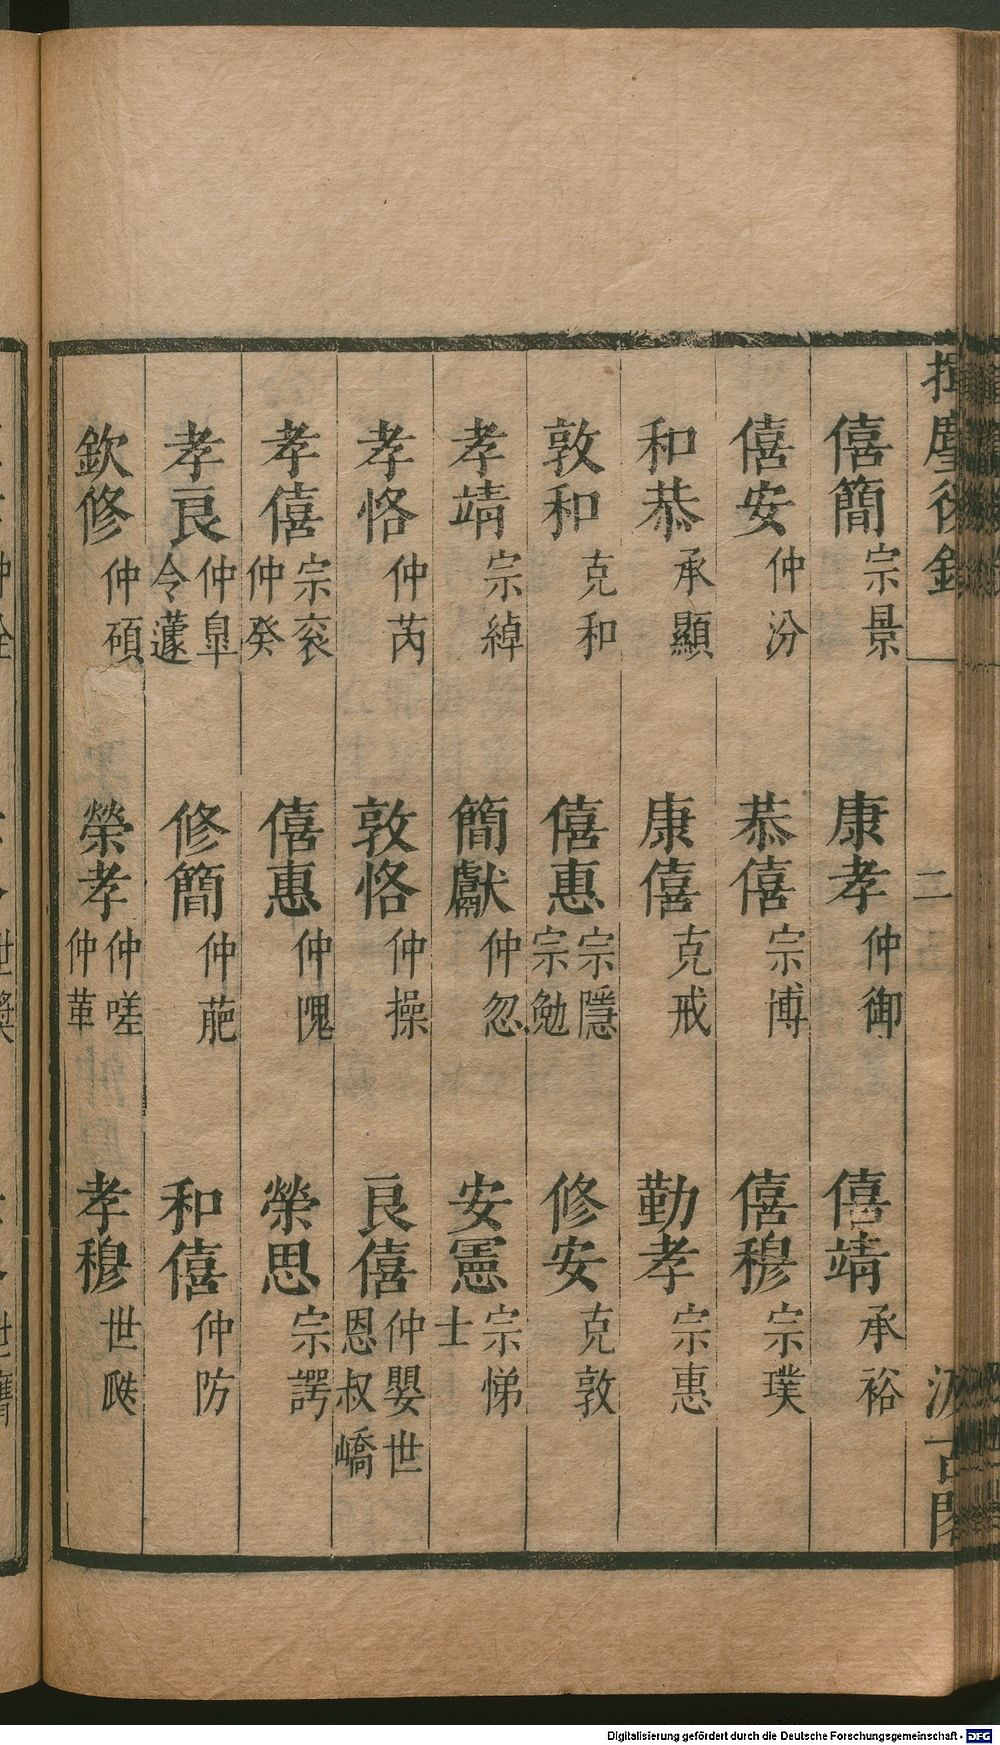 揮麈後錄
二
汲古閣
僖簡 宗景 康孝 仲御 僖靖 承裕
僖安 仲汾 恭僖 宗博 僖穆 宗璞
和恭 承顯 康僖 克戒 勤孝 宗惠
敦和 克和 僖惠 宗隱 宗勉 修安 克敦
孝靖 宗綽 簡獻 仲忽 安憲 宗悌 士
孝恪 仲芮 敦恪 仲操 良僖 仲嬰 世恩 叔嶠
孝僖 宗袞 仲癸 僖惠 仲隗 榮思 宗諤
孝良 仲皐 令蘧 修簡 仲葩 和僖 仲防
欽修 仲碩 榮孝 仲嗟 仲革 孝穆 世
Digitalisierung gefördert durch die Deutsche Forschungsgemeinschaft - DFG